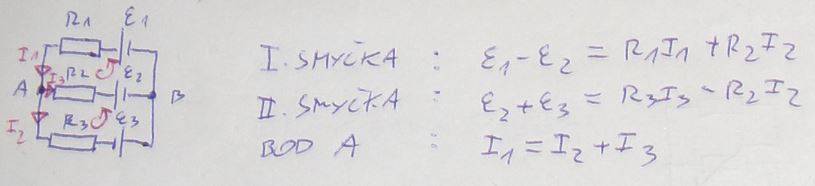 R1 ε1
I1
I3 R2 ε2
A B
I2 R3 ε3
I. SMYČKA : ε1 - ε2 = R1I1 + R2I2
II. SMYČKA : ε2 + ε3 = R3I3 - R2I2
BOD A : I1 = I2 + I3